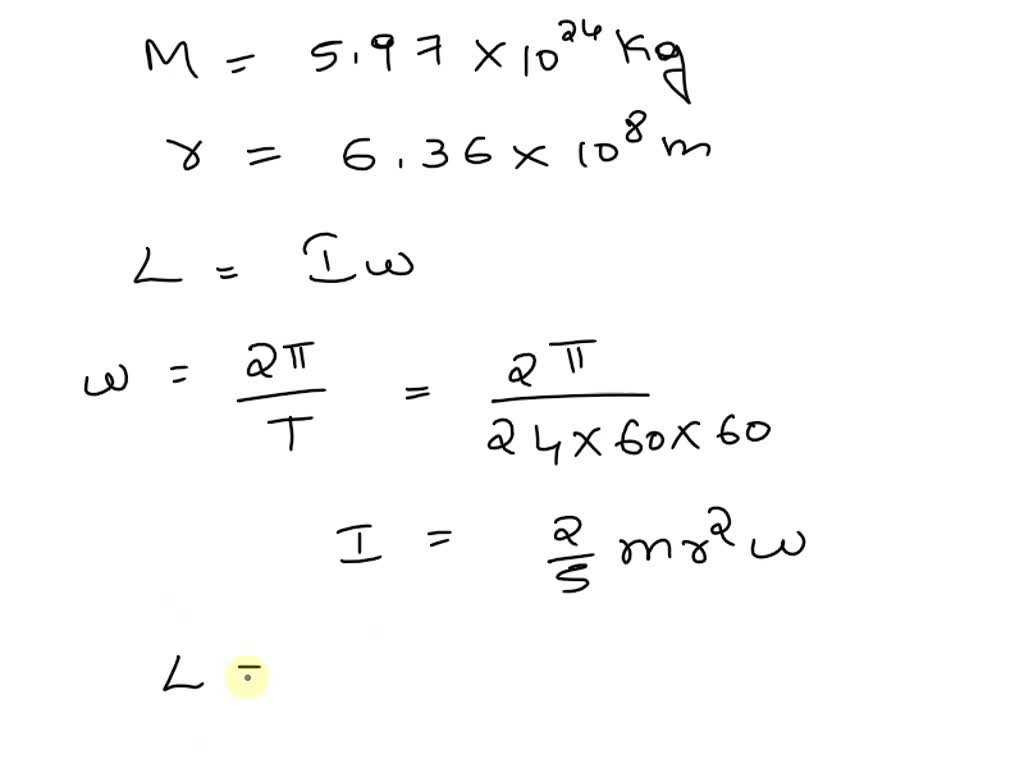 M = 5.97 × 10²⁴ Kg
r = 6.36 × 10⁸ m
L = Iω
ω = 2π/T = 2π/24×60×60
I = 2/5 mr²ω
L =